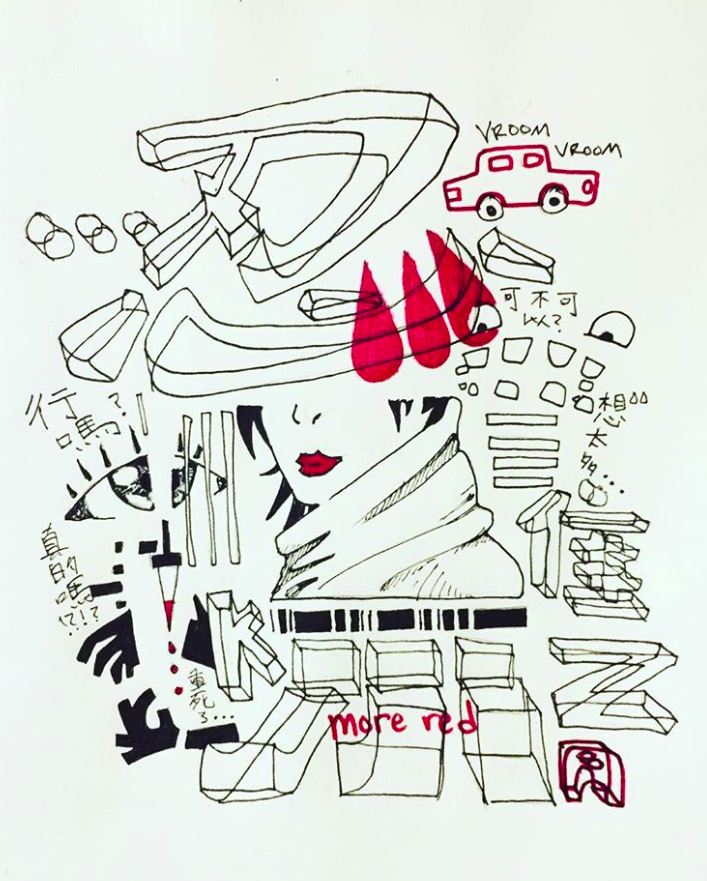 VROOM
VROOM
可不可
以?
行
嗎?
想
太
多...
真的嗎!?!?
K
重死
了...
Z
more red